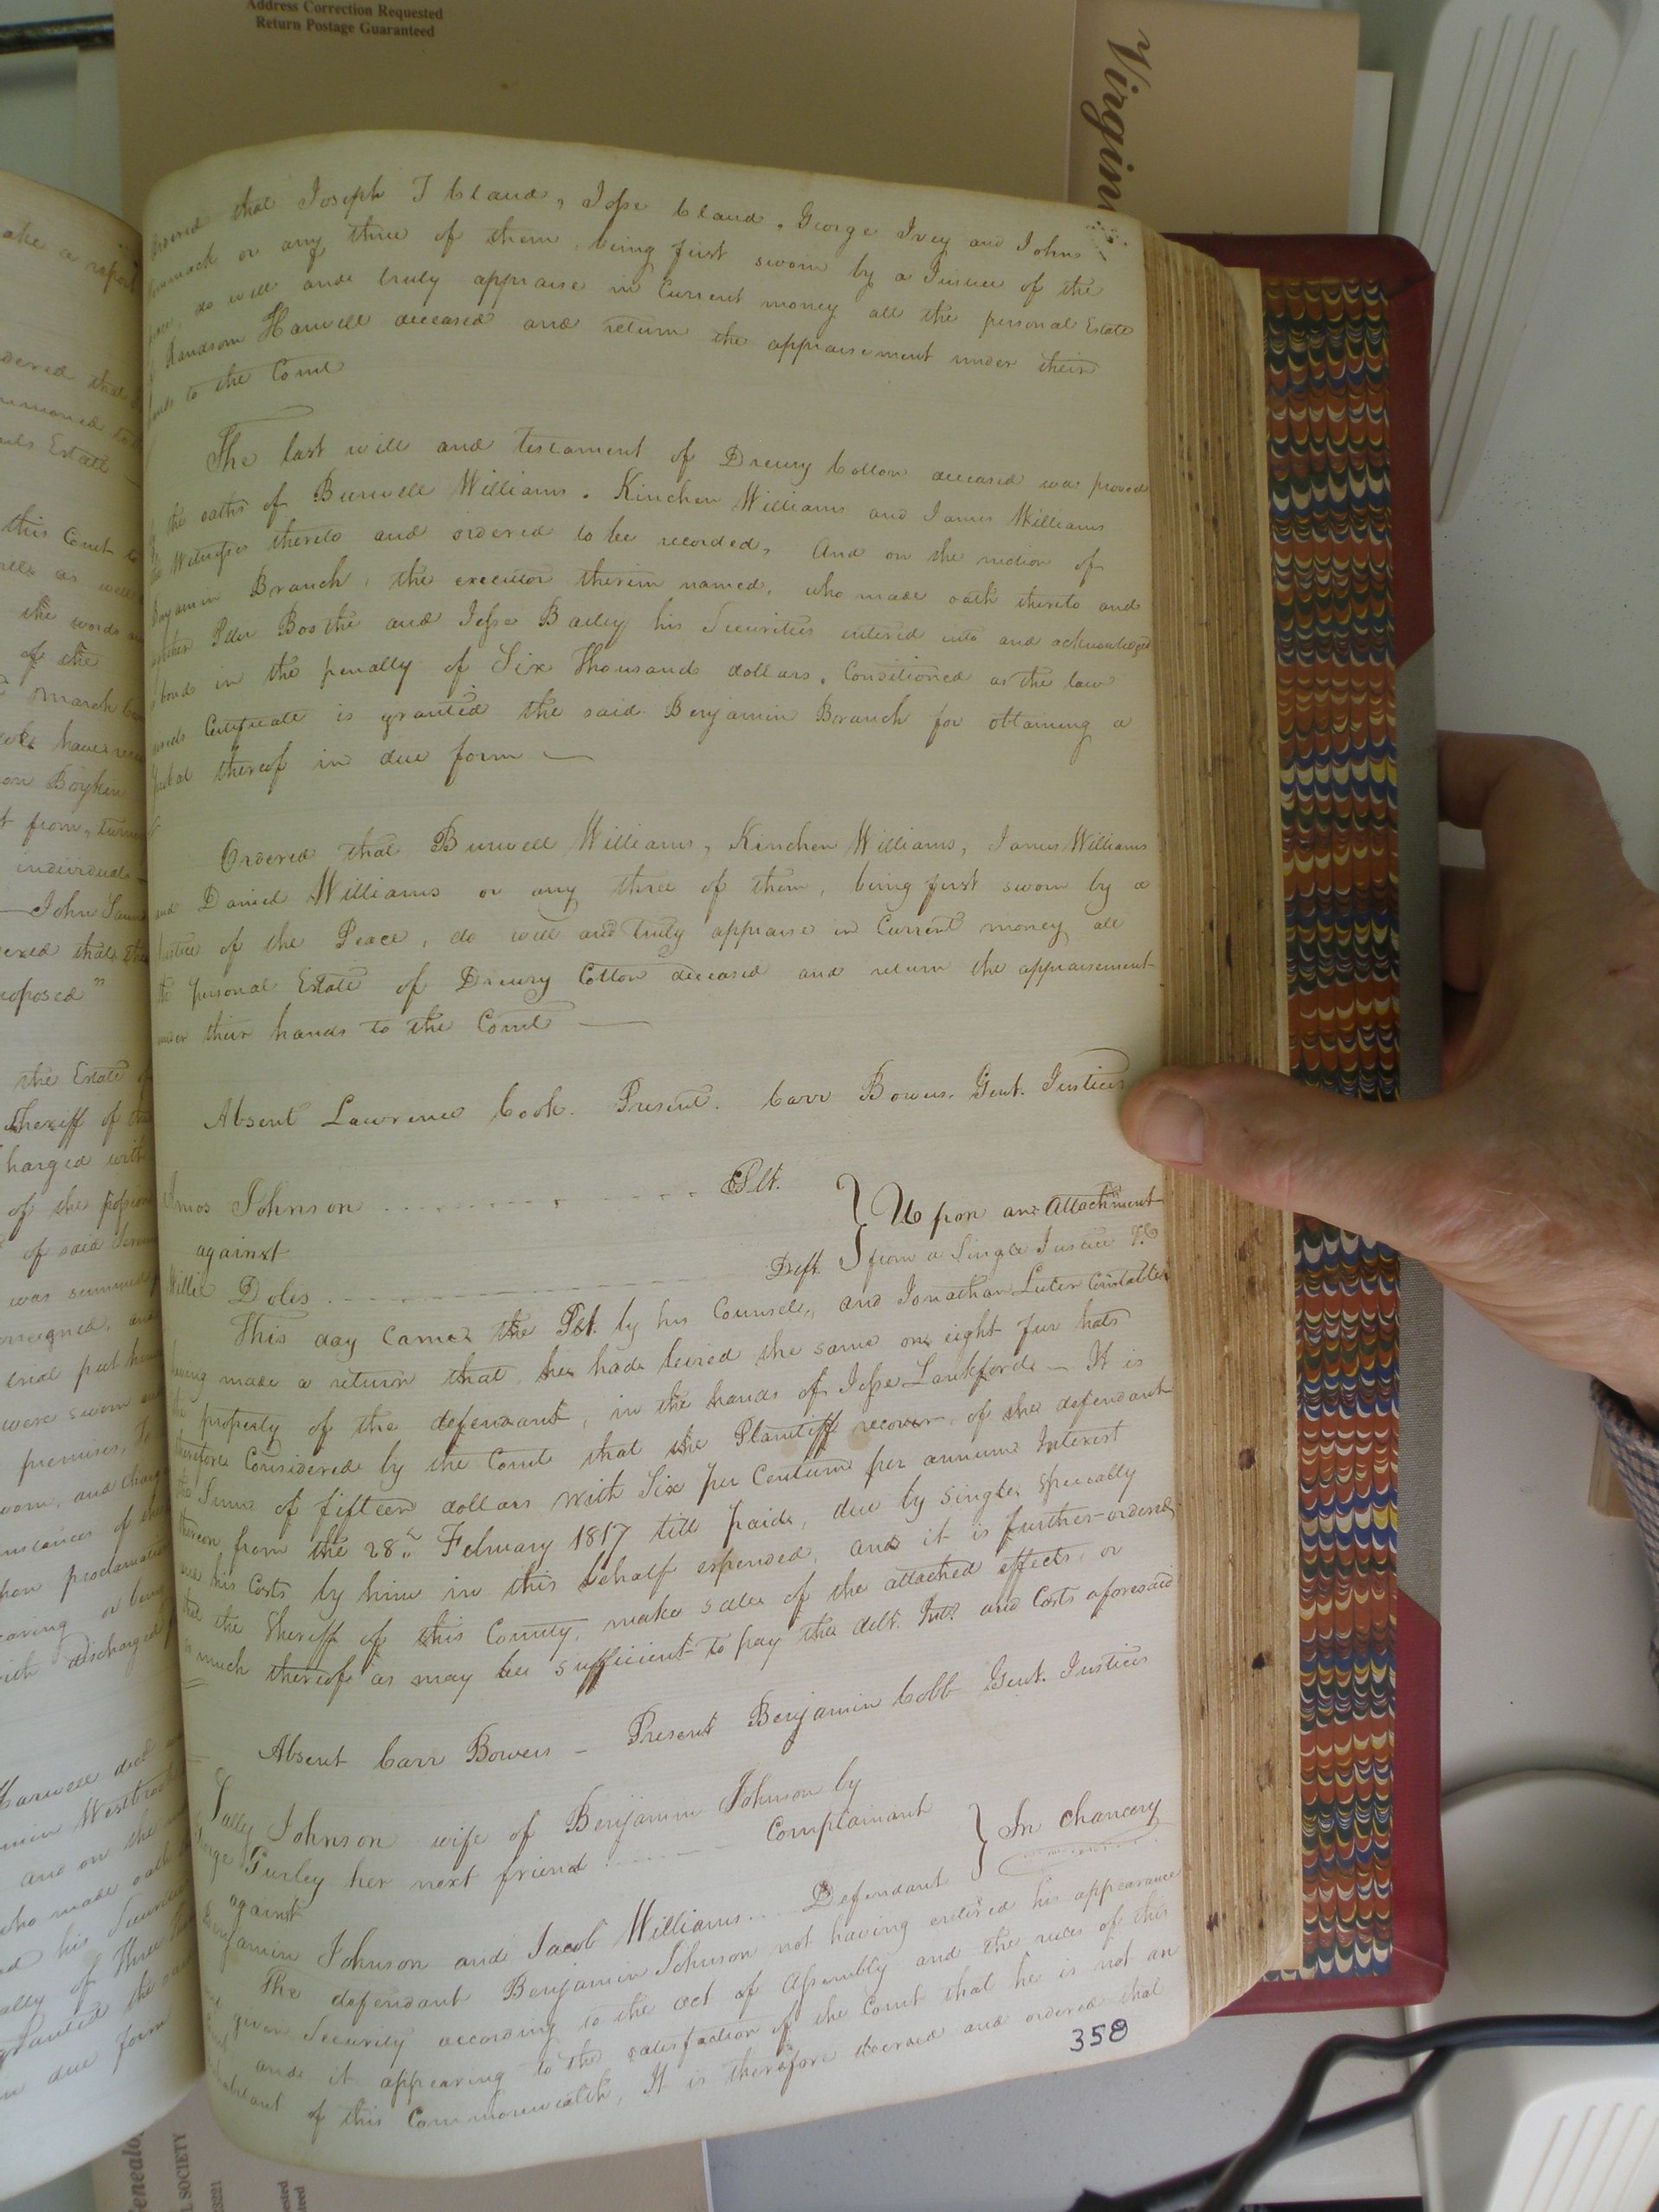 Address Correction Requested
Return Postage Guaranteed
Virgin
that Joseph T Cland, Jesse Cland, George Ivey and John
or any three of them, being first sworn by a Justice of the
do well and truly appraise in Current money all the personal Estate
Randsom Harwell deceased and return the appraisement under their
hands to the Court
The last will and testament of Drewry Cotton deceased was proved
the oaths of Burwell Williams, Kinchen Williams and James Williams
the Witnesses thereto and ordered to be recorded, And on the motion of
Benjamin Branch, the executor therein named, who made oath thereto and
together Peter Boothe and Jesse Bailey his Securities entered into and acknowledged
bond in the penalty of Six Thousand dollars, Conditioned as the law
Certificate is granted the said Benjamin Branch for obtaining a
thereof in due form
Ordered that Burwell Williams, Kinchen Williams, James Williams
and Daniel Williams or any three of them, being first sworn by a
Justice of the Peace, do well and truly appraise in Current money all
the personal Estate of Drewry Cotton deceased and return the appraisement
under their hands to the Court
Absent Lawrence Cook. Present. Carr Bowers. Gent. Justices
Amos Johnson Plt.
against
Upon an Attachment
from a Single Justice &c
Willie Doles Deft.
This day Came the Plt. by his Counsel, and Jonathan Luter Constable
having made a return that he had levied the same on eight fur hats
the property of the defendant, in the hands of Jesse Lankford — It is
therefore Considered by the Court that the Plaintiff recover of the defendant
the Sum of fifteen dollars with Six per Centum per annum Interest
thereon from the 28th February 1817 till paid, due by single specially
and his Costs by him in this behalf expended, and it is further ordered
that the Sheriff of this County, make sale of the attached effects, or
so much thereof as may be sufficient to pay the debt. Int. and Costs aforesaid
Absent Carr Bowers — Present Benjamin Cobb Gent. Justices
Sally Johnson wife of Benjamin Johnson by
George Gurley her next friend Complainant
against
In Chancery
Benjamin Johnson and Jacob Williams Defendant
The defendant Benjamin Johnson not having entered his appearance
and given Security according to the act of Assembly and the rules of this
Court and it appearing to the satisfaction of the Court that he is not an
inhabitant of this Commonwealth, It is therefore decreed and ordered that
358
ake a report
dered that
this Court
as well
the words
of the
March
have
Boykin
from
individual
John
that the
oposed"
the Estate
Sheriff of
harged with
of the
of said
was
were sworn
premises,
and
of the
proclamation
or
discharged
Harwell
Westbrook
and on the
who made oath
his
of Three
the
due form
Genealo
L SOCIETY
23221